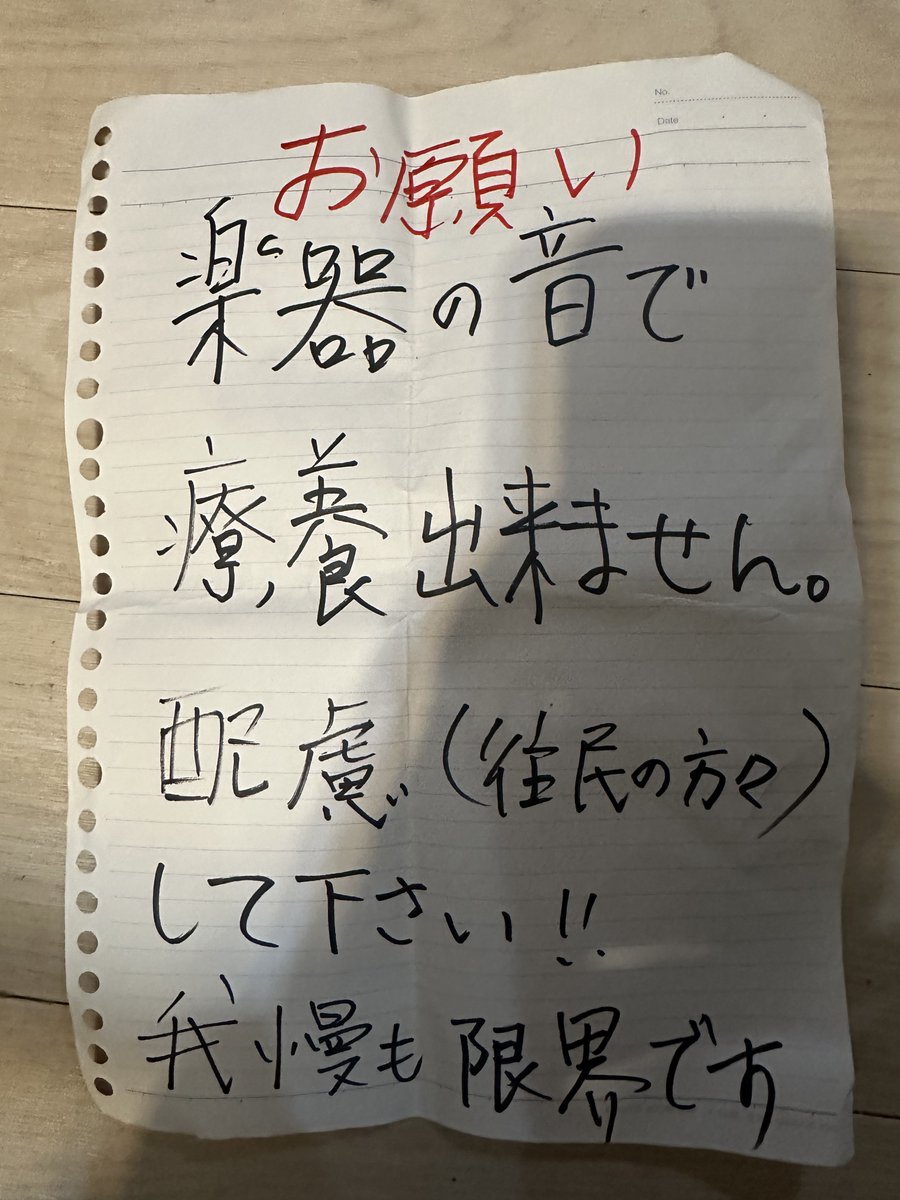 No.
Date
お願い
楽器の音で
療養出来ません。
配慮(住民の方々)
して下さい!!
我慢も限界です